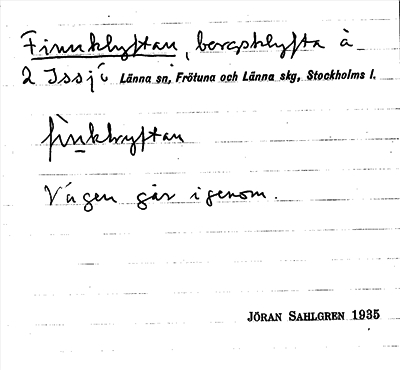 Finnklyftan, bergsklyfta å
2 Issjö Länna sn, Frötuna och Länna skg, Stockholms l.
fìnklyftan
Vägen går igenom.
JÖRAN SAHLGREN 1935